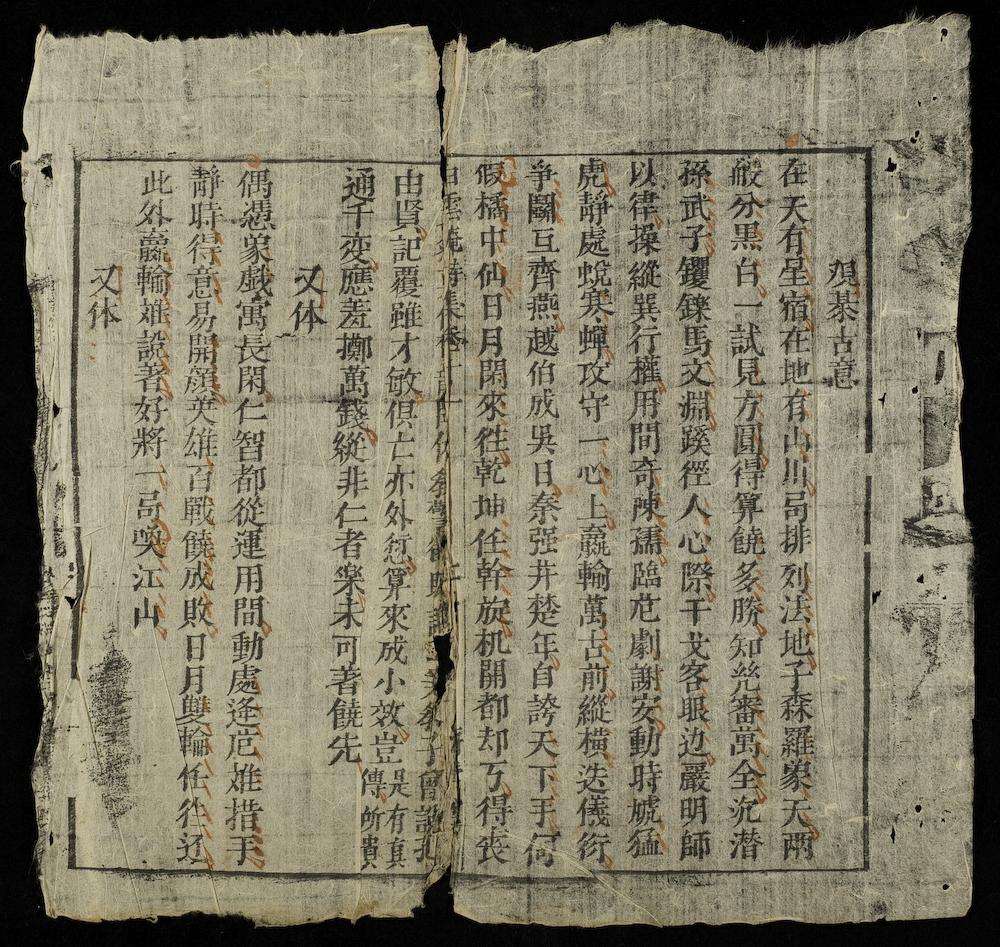 观棊古意
在天有星宿在地有山川局排列法地子森羅象天兩
般分黑白一試見方圓得算饒多勝知兠審萬全沉潛
孫武子钁鑠馬文淵蹊徑人心際干戈客眼边嚴明師
以律操縱巽行權用間奇陳孺臨危劇謝安動時虓猛
虎靜處蛻寒蟬攻守一心上贏輸萬古前縱橫迭儀衍
争鬬互齊燕越伯成吳日秦强井楚年自誇天下手何
假橘中仙日月閑來徃乾坤任幹旋机開都却丂得喪
白雲菴詩集卷十
由賢記覆雖才敏俱亡亦外愆算來成小效豈是有真傳所貴
通千变應差擲萬錢縱非仁者樂未可著饒先
又体
偶憑象戲寓長閑仁智都從運用間動處逢危难措手
靜時得意易開顔英雄百戰饒成敗日月雙輪任往还
此外贏輸难說著好將一局喚江山
又体